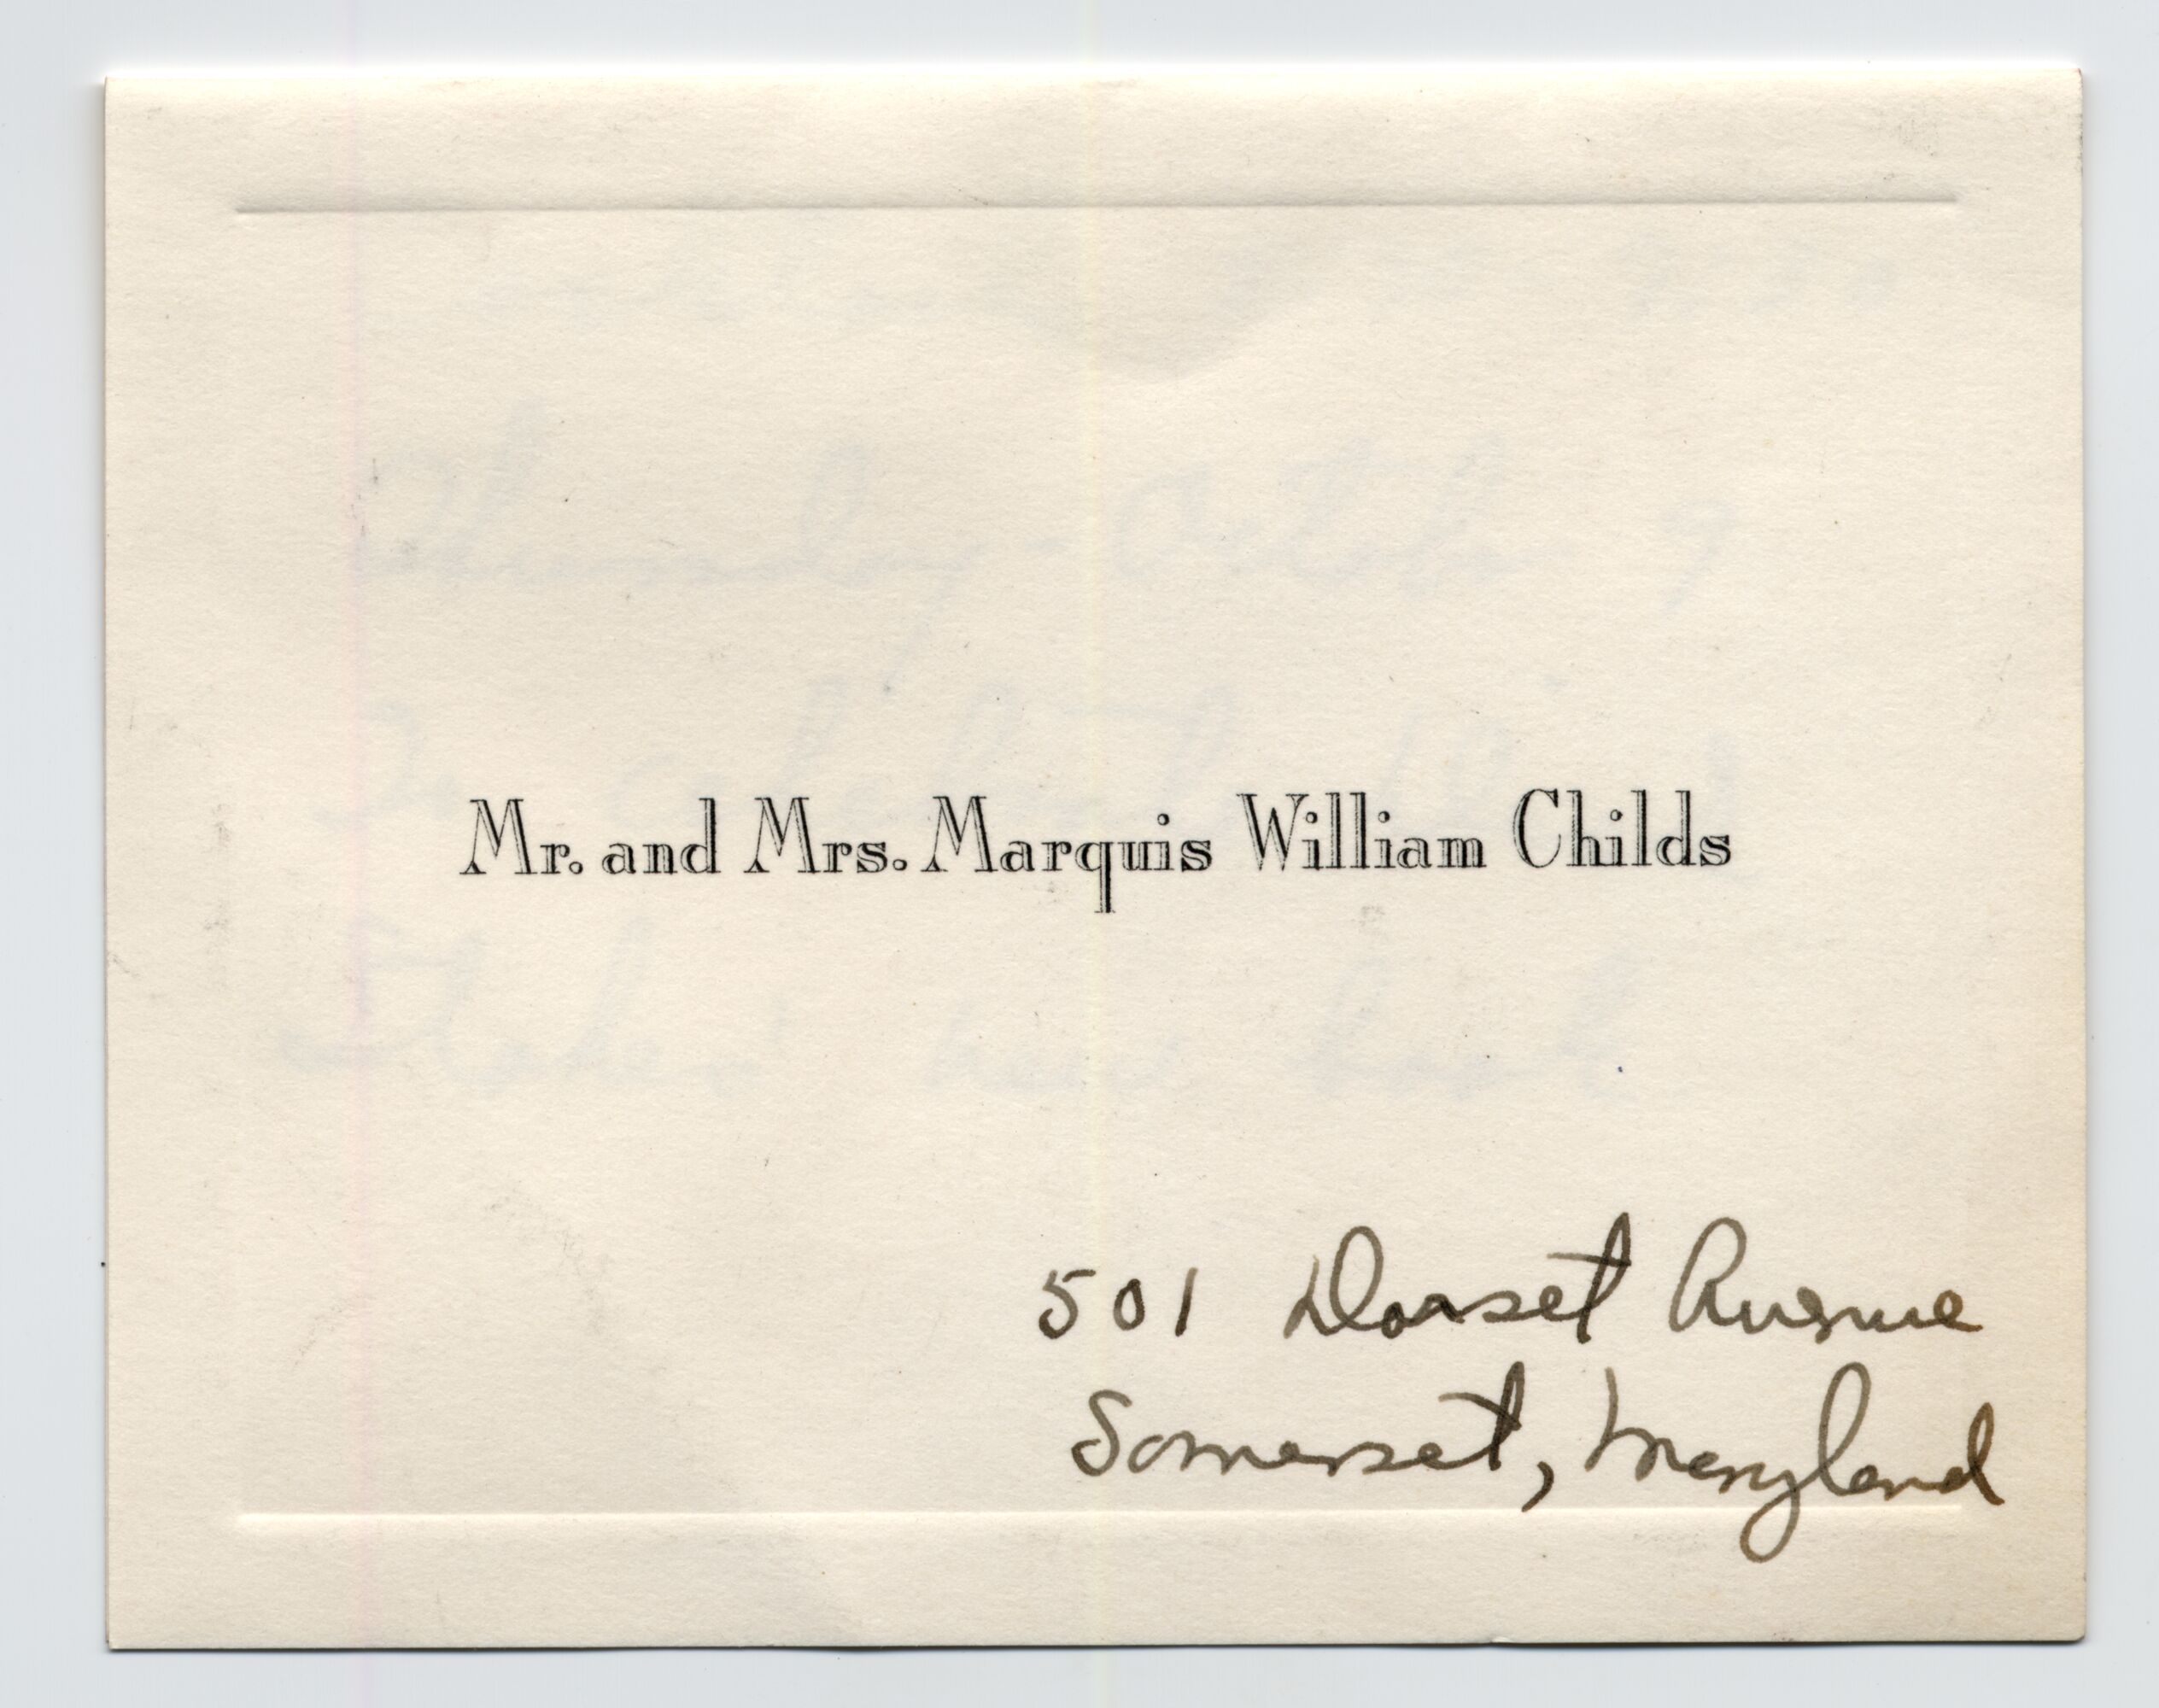 Mr. and Mrs. Marquis William Childs
501 Dorset Avenue
Somerset, Maryland